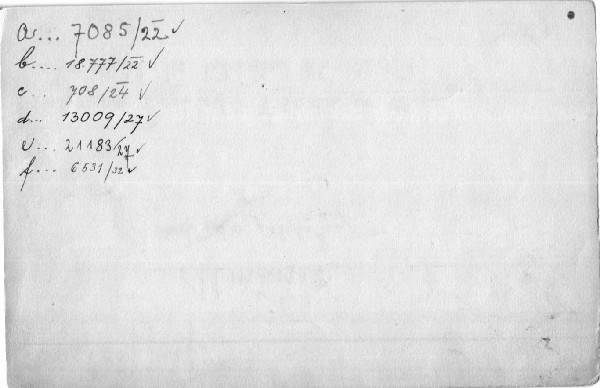 a... 7085/22 ✓
b.... 18777/22 ✓
c... 708/24 ✓
d... 13009/27 ✓
e... 21183/27 ✓
f... 6531/32 ✓